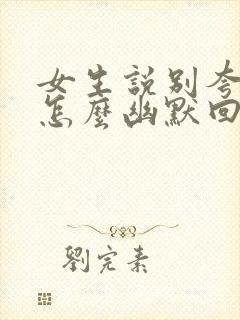 女生説別夸
怎麼幽默回
劉完素